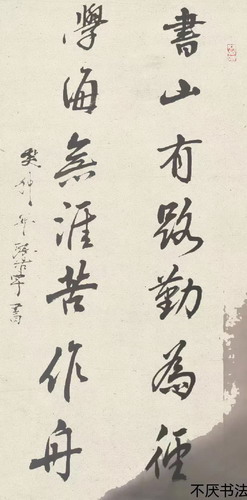 書山有路勤為徑
學海無涯苦作舟
不厌书法